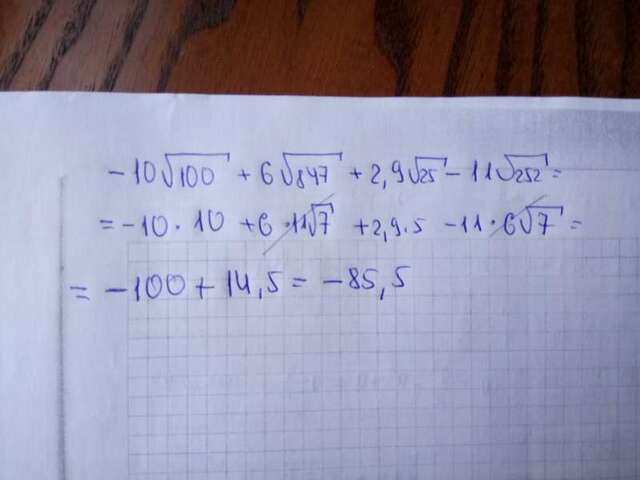 -10√100 + 6√847 + 2,9√25 - 11√252 =
= -10 · 10 + 6 · 11√7 + 2,9 · 5 - 11 · 6√7 =
= -100 + 14,5 = -85,5